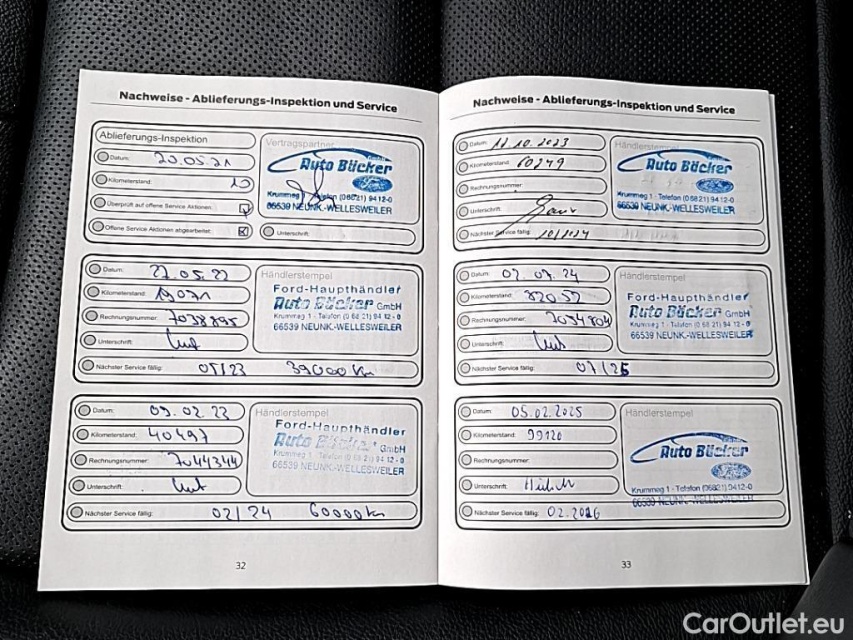 Nachweise - Ablieferungs-Inspektion und Service
Ablieferungs-Inspektion
Datum: 20.05.21
Kilometerstand: 10
Überprüft auf offene Service Aktionen:
Offene Service Aktionen abgearbeitet:
Vertragspartner
Auto Bäcker
Krummeg 1 - Telefon (06821) 9412-0
66539 NEUNK.-WELLESWEILER
Unterschrift:
Datum: 27.05.22
Kilometerstand: 19071
Rechnungsnummer: 7038895
Unterschrift:
Nächster Service fällig: 05/23 39000 Km
Händlerstempel
Ford-Haupthändler
Auto Bäcker GmbH
Krummeg 1 - Telefon (06821) 9412-0
66539 NEUNK.-WELLESWEILER
Datum: 09.02.23
Kilometerstand: 40497
Rechnungsnummer: 7044344
Unterschrift:
Nächster Service fällig: 02/24 60000 Km
Händlerstempel
Ford-Haupthändler
Auto Bäcker GmbH
Krummeg 1 - Telefon (06821) 9412-0
66539 NEUNK.-WELLESWEILER
32
Nachweise - Ablieferungs-Inspektion und Service
Datum: 11.10.2023
Kilometerstand: 60249
Rechnungsnummer:
Unterschrift:
Nächster Service fällig: 10/2024
Händlerstempel
Auto Bäcker
Krummeg 1 - Telefon (06821) 9412-0
66539 NEUNK.-WELLESWEILER
Datum: 02.07.24
Kilometerstand: 82052
Rechnungsnummer: 7054804
Unterschrift:
Nächster Service fällig: 07/25
Händlerstempel
Ford-Haupthändler
Auto Bäcker GmbH
Krummeg 1 - Telefon (06821) 9412-0
66539 NEUNK.-WELLESWEILER
Datum: 05.02.2025
Kilometerstand: 99120
Rechnungsnummer:
Unterschrift:
Nächster Service fällig: 02.2026
Händlerstempel
Auto Bäcker
Krummeg 1 - Telefon (06821) 9412-0
66539 NEUNK.-WELLESWEILER
33
CarOutlet.eu